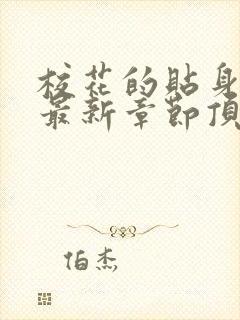 校花的貼身
最新章節頂
伯杰